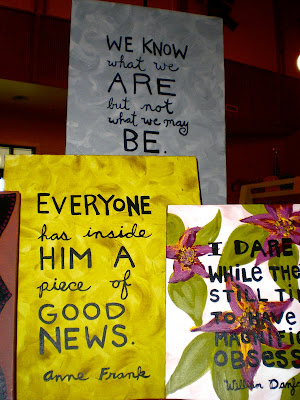 WE KNOW
what we
ARE
but not
what we may
BE.
EVERYONE
has inside
HIM A
piece of
GOOD
NEWS.
Anne Frank
I DARE
WHILE THE
STILL TI
TO HAVE
MAGNIFIC
OBSESS
William Dan